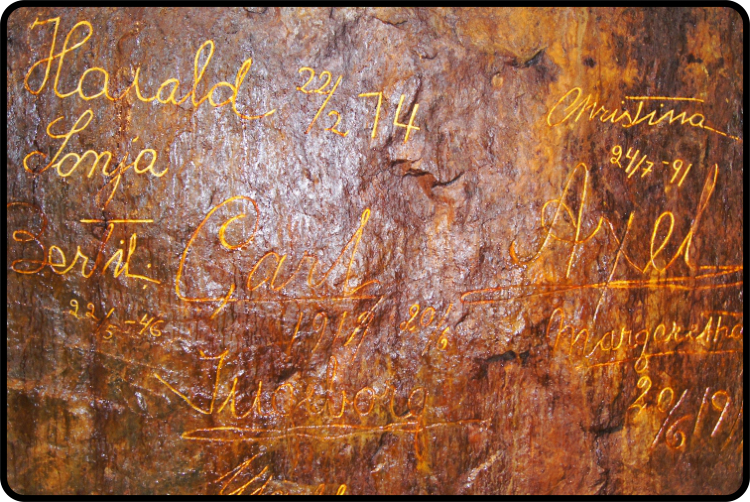 Harald 22/2 74
Sonja
Christina
24/7-91
Bertil
Carl
Axel
22/5-46
1917 20/6
Margaretha
Ingeborg
20/6 19